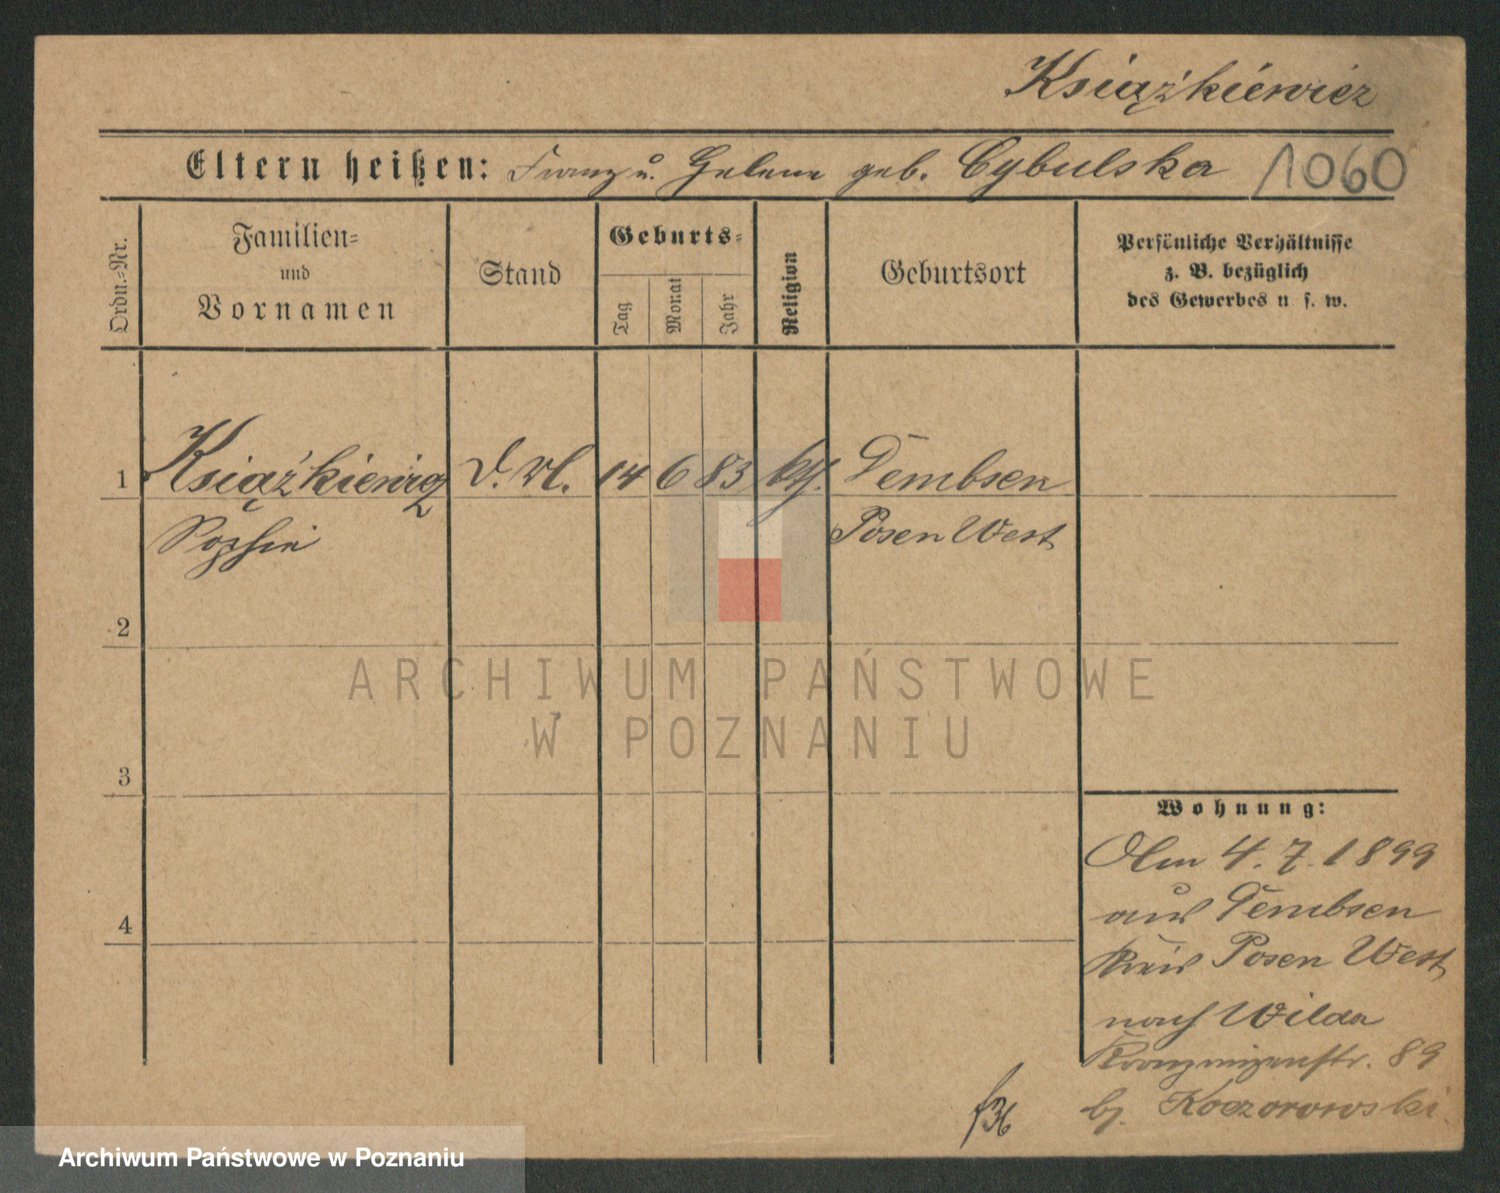 Książkiewicz
Eltern heißen: Franz u. Helene geb. Cybulska 1060
Ordn.=Nr.
Familien=
und
Vornamen
Stand
Geburts=
Tag
Monat
Jahr
Religion
Geburtsort
Persönliche Verhältnisse
z. B. bezüglich
des Gewerbes u. s. w.
1 Książkiewicz 14 6 83 kth. Dembsen
Sophie Posen West
2
3
4
Wohnung:
Am 4. 7. 1899
aus Dembsen
Kreis Posen West
nach Wilda
Kronprinzenstr. 89
bj. Koczorowski
ARCHIWUM PAŃSTWOWE
W POZNANIU
Archiwum Państwowe w Poznaniu